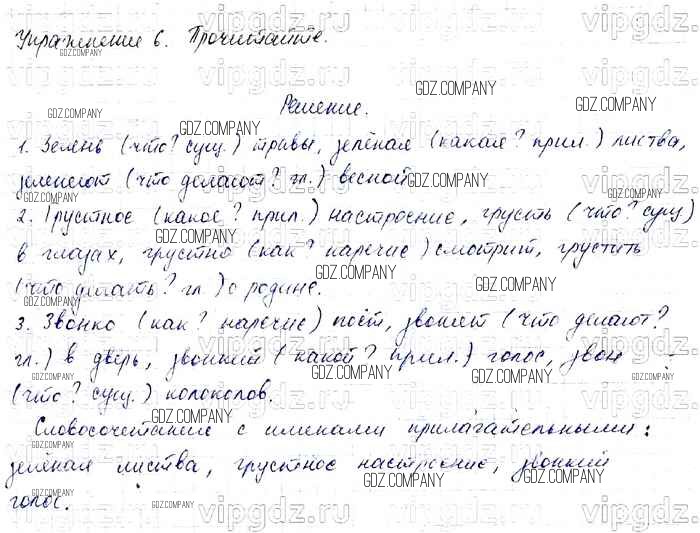 Упражнение 6. Прочитайте.
Решение.
1. Зелень (что? сущ.) травы, зелёная (какая? прил.) листва,
зеленеют (что делают? гл.) весной.
2. Грустное (какое? прил.) настроение, грусть (что? сущ)
в глазах, грустно (как? наречие) смотрит, грустить
(что делать? гл.) о родине.
3. Звонко (как? наречие) поёт, звонят (что делают?
гл.) в дверь, звонкий (какой? прил.) голос, звон
(что? сущ.) колоколов.
Словосочетание с именами прилагательными:
зелёная листва, грустное настроение, звонкий
голос.